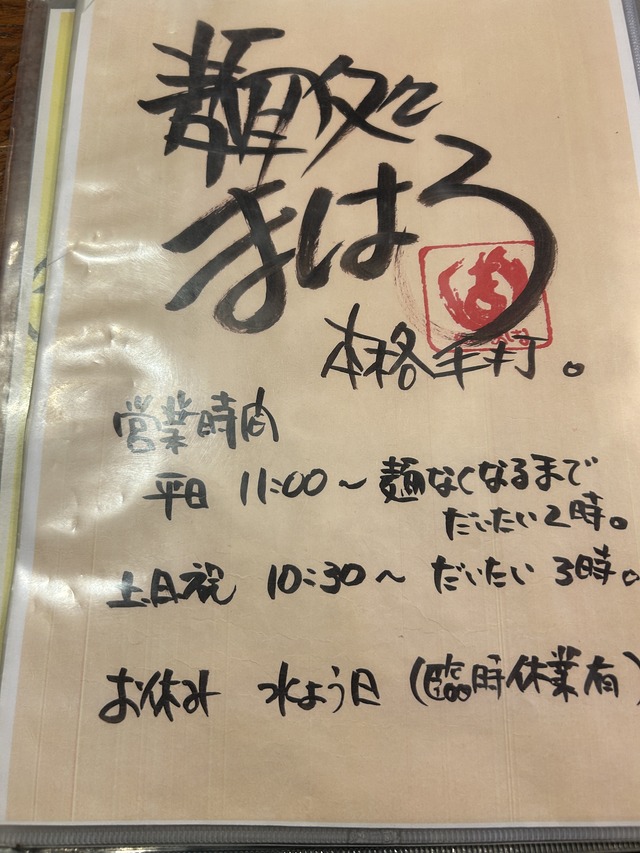 麺処
まはろ
本格手打。
営業時間
平日 11:00～麺なくなるまで
だいたい2時。
土日祝 10:30～ だいたい 3時。
お休み 水よう日 (臨時休業有)